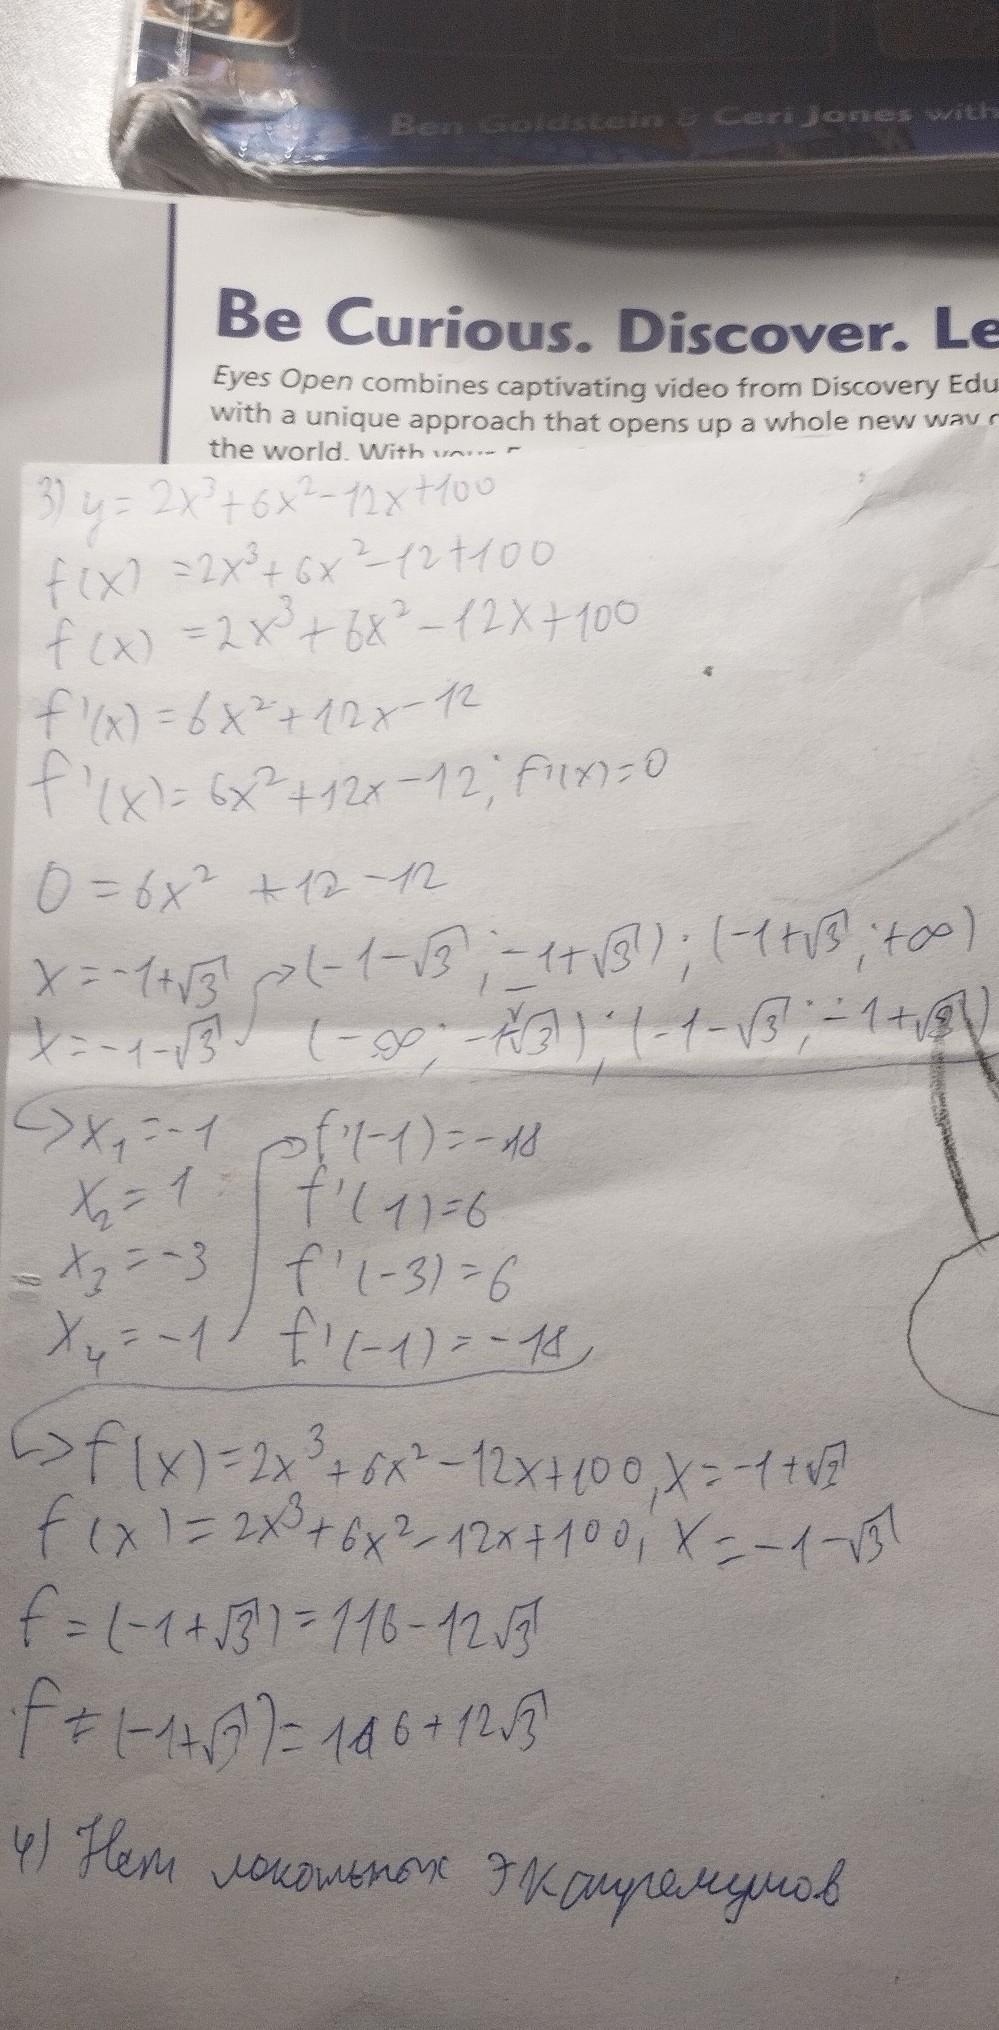 Ben Goldstein & Ceri Jones with
Be Curious. Discover. Le
Eyes Open combines captivating video from Discovery Edu
with a unique approach that opens up a whole new way
the world. With
3) y = 2x³+6x²-12x+100
f(x) =2x³+6x²-12+100
f(x) =2x³+6x²-12x+100
f'(x)=6x²+12x-12
f'(x)=6x²+12x-12; f'(x)=0
0=6x² +12-12
x=-1+√3 → (-1-√3; -1+√3); (-1+√3; +∞)
x=-1-√3 (-∞; -1-√3); (-1-√3; -1+√3)
→ x₁=-1 → f'(-1)=-18
x₂=1 f'(1)=6
x₃=-3 f'(-3)=6
x₄=-1 f'(-1)=-18
→ f(x)=2x³+6x²-12x+100, x=-1+√3
f(x)=2x³+6x²-12x+100, x=-1-√3
f=(-1+√3)=116-12√3
f=(-1+√3)=116+12√3
4) Нет локальных экстремумов